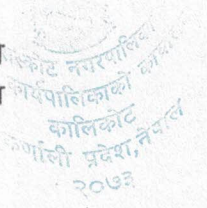 नगरपालिका
कार्यपालिकाको कार्यालय
कालिकोट
कर्णाली प्रदेश, नेपाल
२०७३